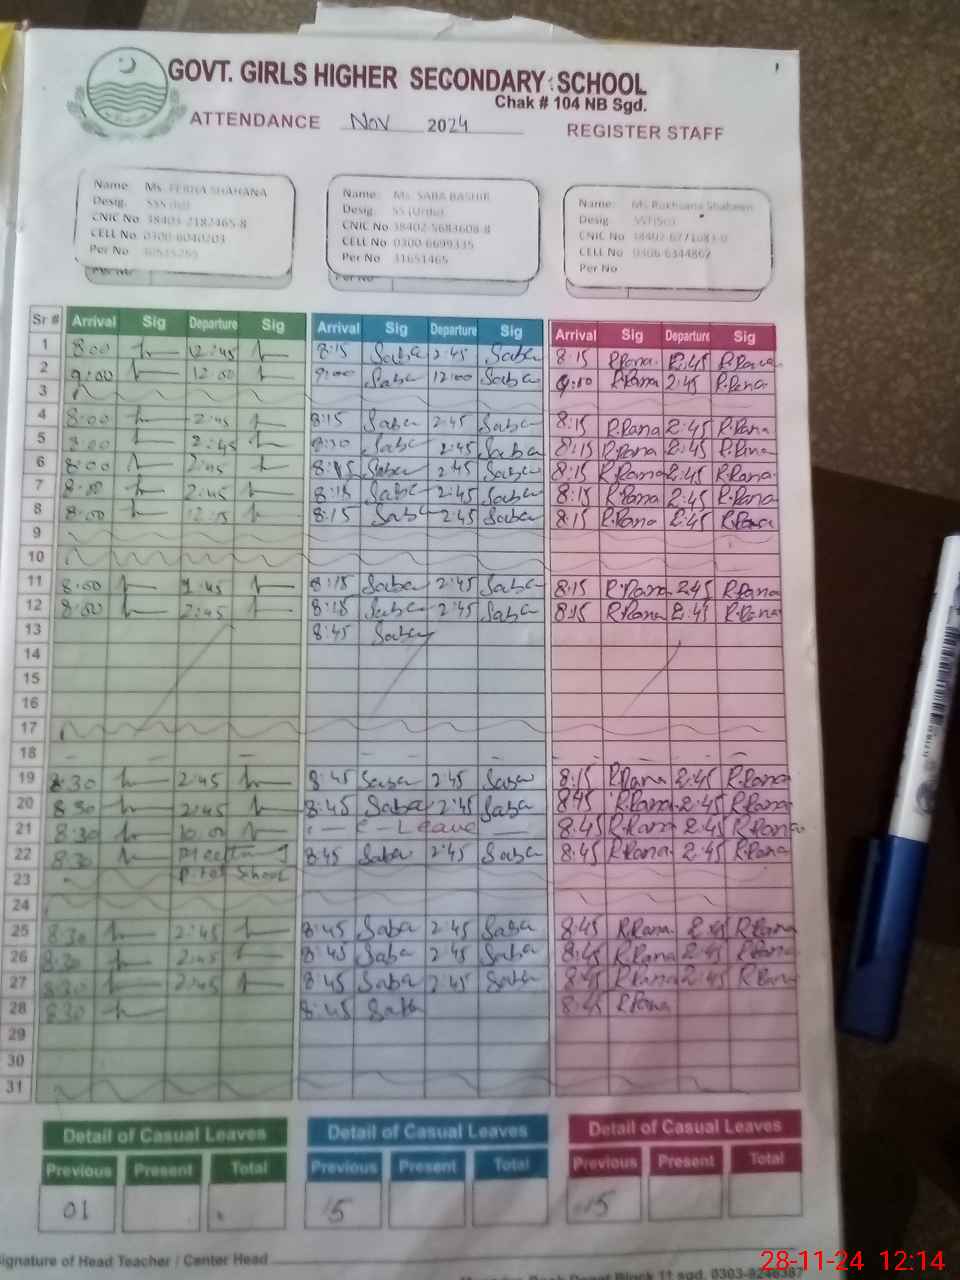 GOVT. GIRLS HIGHER SECONDARY SCHOOL
Chak # 104 NB Sgd.
ATTENDANCE Nov 2024 REGISTER STAFF
Name: Ms. FERHA SHAHANA
Desig.
CNIC No 38403-2182465-8
CELL No 0300-6040203
Per No
Name: Ms. SABA BASHIR
Desig. SS (Urdu)
CNIC No 38402-5683608-8
CELL No 0300-6699335
Per No 31651465
Name: Ms Rukhsana Shaheen
Desig
CNIC No
CELL No 0306-6344862
Per No
Sr # Arrival Sig Departure Sig Arrival Sig Departure Sig Arrival Sig Departure Sig
1 8:00 12:45 8:15 Saba 2:45 Saba 8:15 R.Rana 2:45 R.Rana
2 9:00 12:00 9:00 Saba 12:00 Saba R.Rana 2:45 R.Rana
3
4 8:00 2:45 8:15 Saba 2:45 Saba 8:15 R.Rana 2:45 R.Rana
5 8:00 2:45 Saba 2:45 Saba 8:15 R.Rana 2:45 R.Rana
6 8:00 2:45 8:15 Saba 2:45 Saba 8:15 R.Rana 2:45 R.Rana
7 8:00 2:45 8:15 Saba 2:45 Saba 8:15 R.Rana 2:45 R.Rana
8 8:00 8:15 Saba 2:45 Saba 8:15 R.Rana 2:45 R.Rana
9
10
11 8:00 8:15 Saba 2:45 Saba 8:15 R.Rana 2:45 R.Rana
12 8:00 2:45 8:15 Saba 2:45 Saba 8:15 R.Rana 2:45 R.Rana
13 8:45 Saba
14
15
16
17
18
19 8:30 2:45 8:45 Saba 2:45 Saba 8:15 R.Rana 2:45 R.Rana
20 8:30 2:45 8:45 Saba 2:45 Saba 8:45 R.Rana 2:45 R.Rana
21 8:30 10:00 C-Leave 8:45 R.Rana 2:45 R.Rana
22 8:30 Meeting 8:45 Saba 2:45 Saba 8:45 R.Rana 2:45 R.Rana
23 School
24
25 8:30 2:45 8:45 Saba 2:45 Saba 8:45 R.Rana 2:45 R.Rana
26 8:30 2:45 8:45 Saba 2:45 Saba 8:45 R.Rana 2:45 R.Rana
27 8:30 2:45 8:45 Saba 2:45 Saba 8:45 R.Rana 2:45 R.Rana
28 8:30 8:45 Saba 8:45 R.Rana
29
30
31
Detail of Casual Leaves Detail of Casual Leaves Detail of Casual Leaves
Previous Present Total Previous Present Total Previous Present Total
01 5 5
Signature of Head Teacher / Center Head
Block 11 sgd. 0303-9246387
28-11-24 12:14